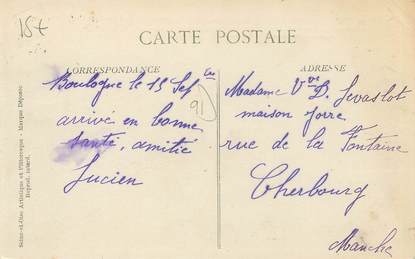 15+
CARTE POSTALE
CORRESPONDANCE
ADRESSE
Boulogne le 15 Sep^bre
arrivé en bonne
santé, amitié
Lucien
91
Madame V^ve D. Levaslot
maison Jorre
rue de la Fontaine
Cherbourg
Manche
Seine-et-Oise Artistique et Pittoresque - Marque Déposée
Reprod. interd.